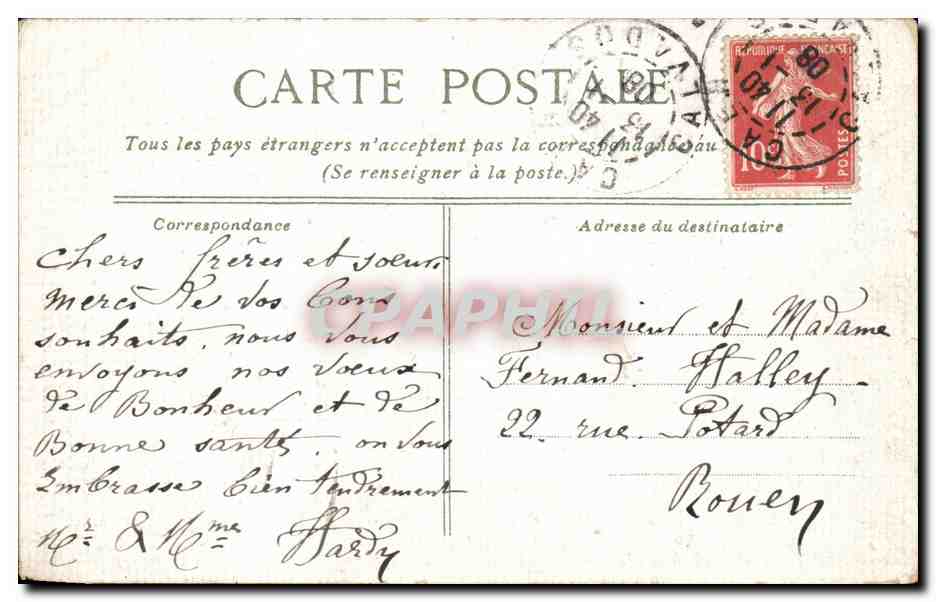 CARTE POSTALE
Tous les pays étrangers n'acceptent pas la correspondance au
(Se renseigner à la poste.)
REPUBLIQUE FRANÇAISE
10
POSTES
CALVADOS
11 40
13 - 1
08
Correspondance
Adresse du destinataire
Chers frères et soeurs
merci de vos bons
souhaits, nous vous
envoyons nos vœux
de Bonheur et de
Bonne santé, on vous
Embrasse bien tendrement
Mr & Mme Hardy
CPAPHIL
Monsieur et Madame
Fernand Halley
22. rue. Potard
Rouen